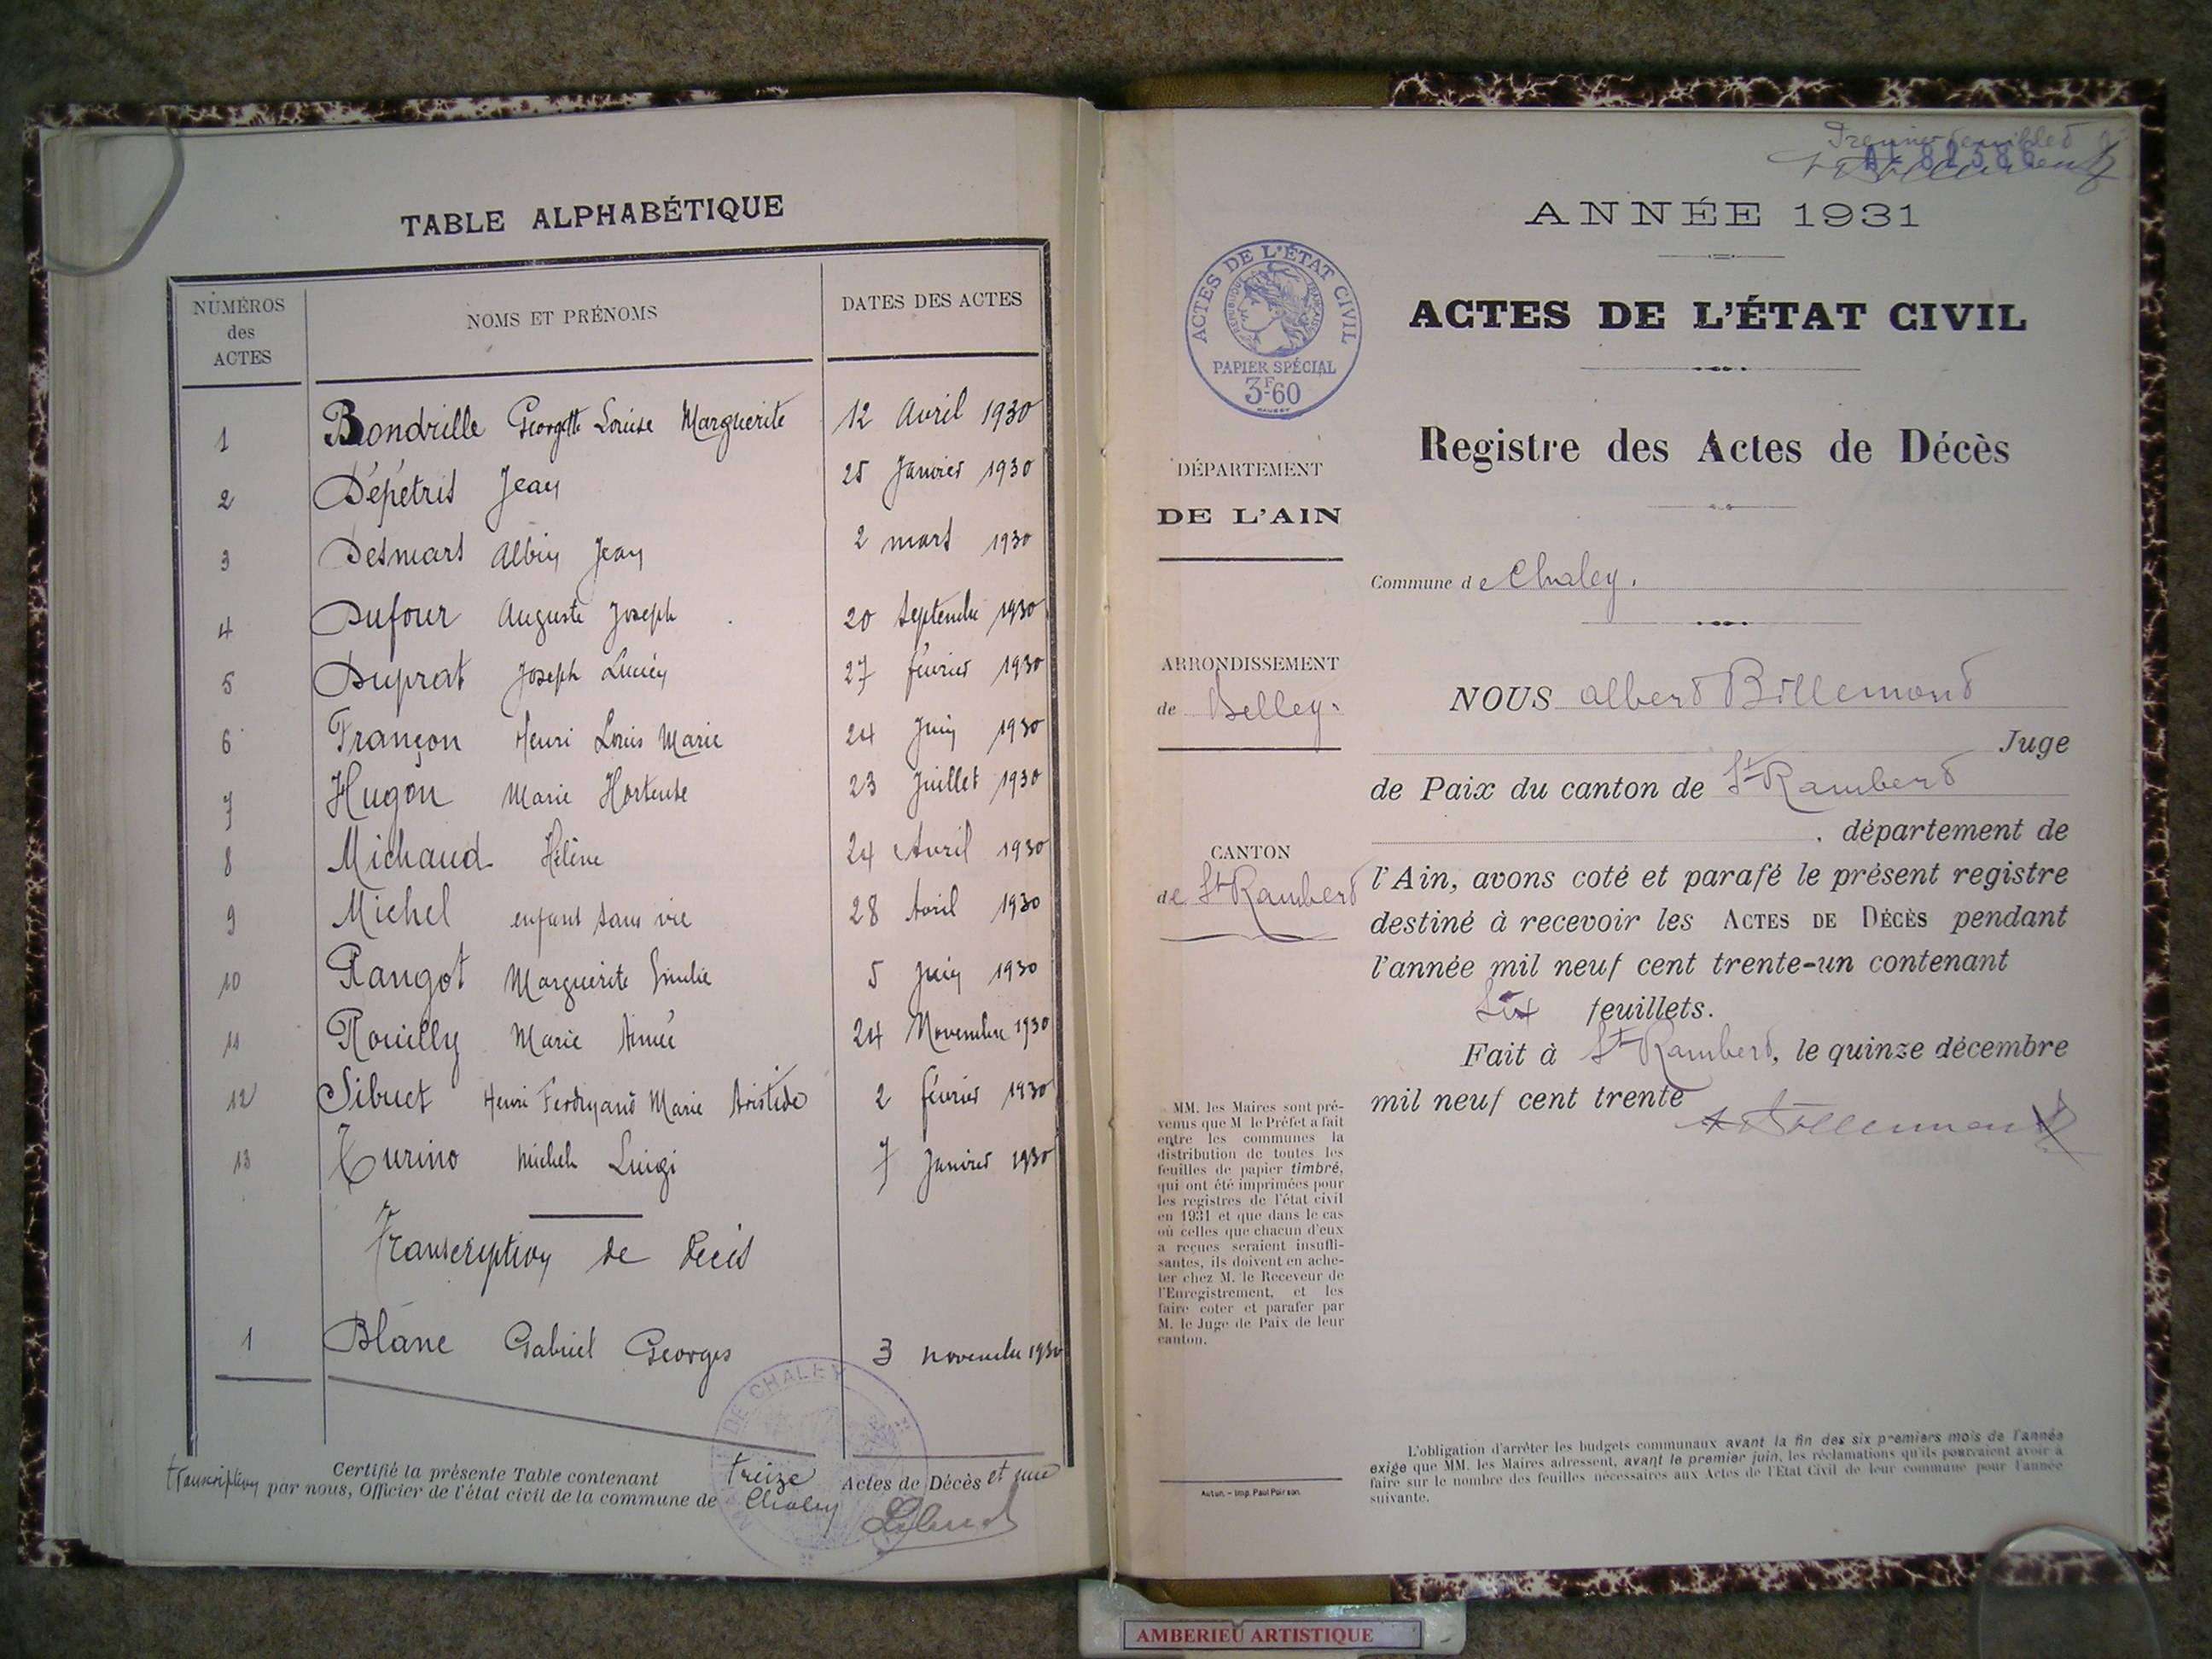 TABLE ALPHABÉTIQUE
NUMÉROS des ACTES
NOMS ET PRÉNOMS
DATES DES ACTES
1 Bondrille Georgette Louise Marguerite 12 Avril 1930
2 Dépétris Jean 25 Janvier 1930
3 Desmars Albin Jean 2 mars 1930
4 Dufour Auguste Joseph 20 Septembre 1930
5 Duprat Joseph Lucien 27 février 1930
6 Françon Henri Louis Marie 24 Juin 1930
7 Hugon Marie Hortense 23 Juillet 1930
8 Michaud Hélène 24 Avril 1930
9 Michel enfant sans vie 28 Avril 1930
10 Rangot Marguerite 5 Juin 1930
11 Rouilly Marie Aimée 24 Novembre 1930
12 Sibuet Henri Ferdinand Marie Aristide 2 février 1930
13 Turino Michel Luigi 7 Janvier 1930
Transcription de décès
1 Blanc Gabriel Georges 3 novembre 1930
Certifié la présente Table contenant treize Actes de Décès et une
transcription par nous, Officier de l'état civil de la commune de Chaley
DE CHALEY
Premier feuillet
ANNÉE 1931
ACTES DE L'ÉTAT CIVIL
RÉPUBLIQUE FRANÇAISE
PAPIER SPÉCIAL
3F60
ACTES DE L'ÉTAT CIVIL
Registre des Actes de Décès
DÉPARTEMENT
DE L'AIN
Commune de Chaley.
ARRONDISSEMENT
de Belley.
CANTON
de St Rambert
NOUS Albert Billemond
Juge
de Paix du canton de St Rambert
, département de
l'Ain, avons coté et parafé le présent registre
destiné à recevoir les ACTES DE DÉCÈS pendant
l'année mil neuf cent trente-un contenant
Six feuillets.
Fait à St Rambert, le quinze décembre
mil neuf cent trente
MM. les Maires sont pré-
venus que M le Préfet a fait
entre les communes la
distribution de toutes les
feuilles de papier timbré,
qui ont été imprimées pour
les registres de l'état civil
en 1931 et que dans le cas
où celles que chacun d'eux
a reçues seraient insuffi-
santes, ils doivent en ache-
ter chez M. le Receveur de
l'Enregistrement, et les
faire coter et parafer par
M. le Juge de Paix de leur
canton.
Autun. – Imp. Paul Poirson.
L'obligation d'arrêter les budgets communaux avant la fin des six premiers mois de l'année
exige que MM. les Maires adressent, avant le premier juin, les réclamations qu'ils pourraient avoir à
faire sur le nombre des feuilles nécessaires aux Actes de l'Etat Civil de leur commune pour l'année
suivante.
AMBERIEU ARTISTIQUE